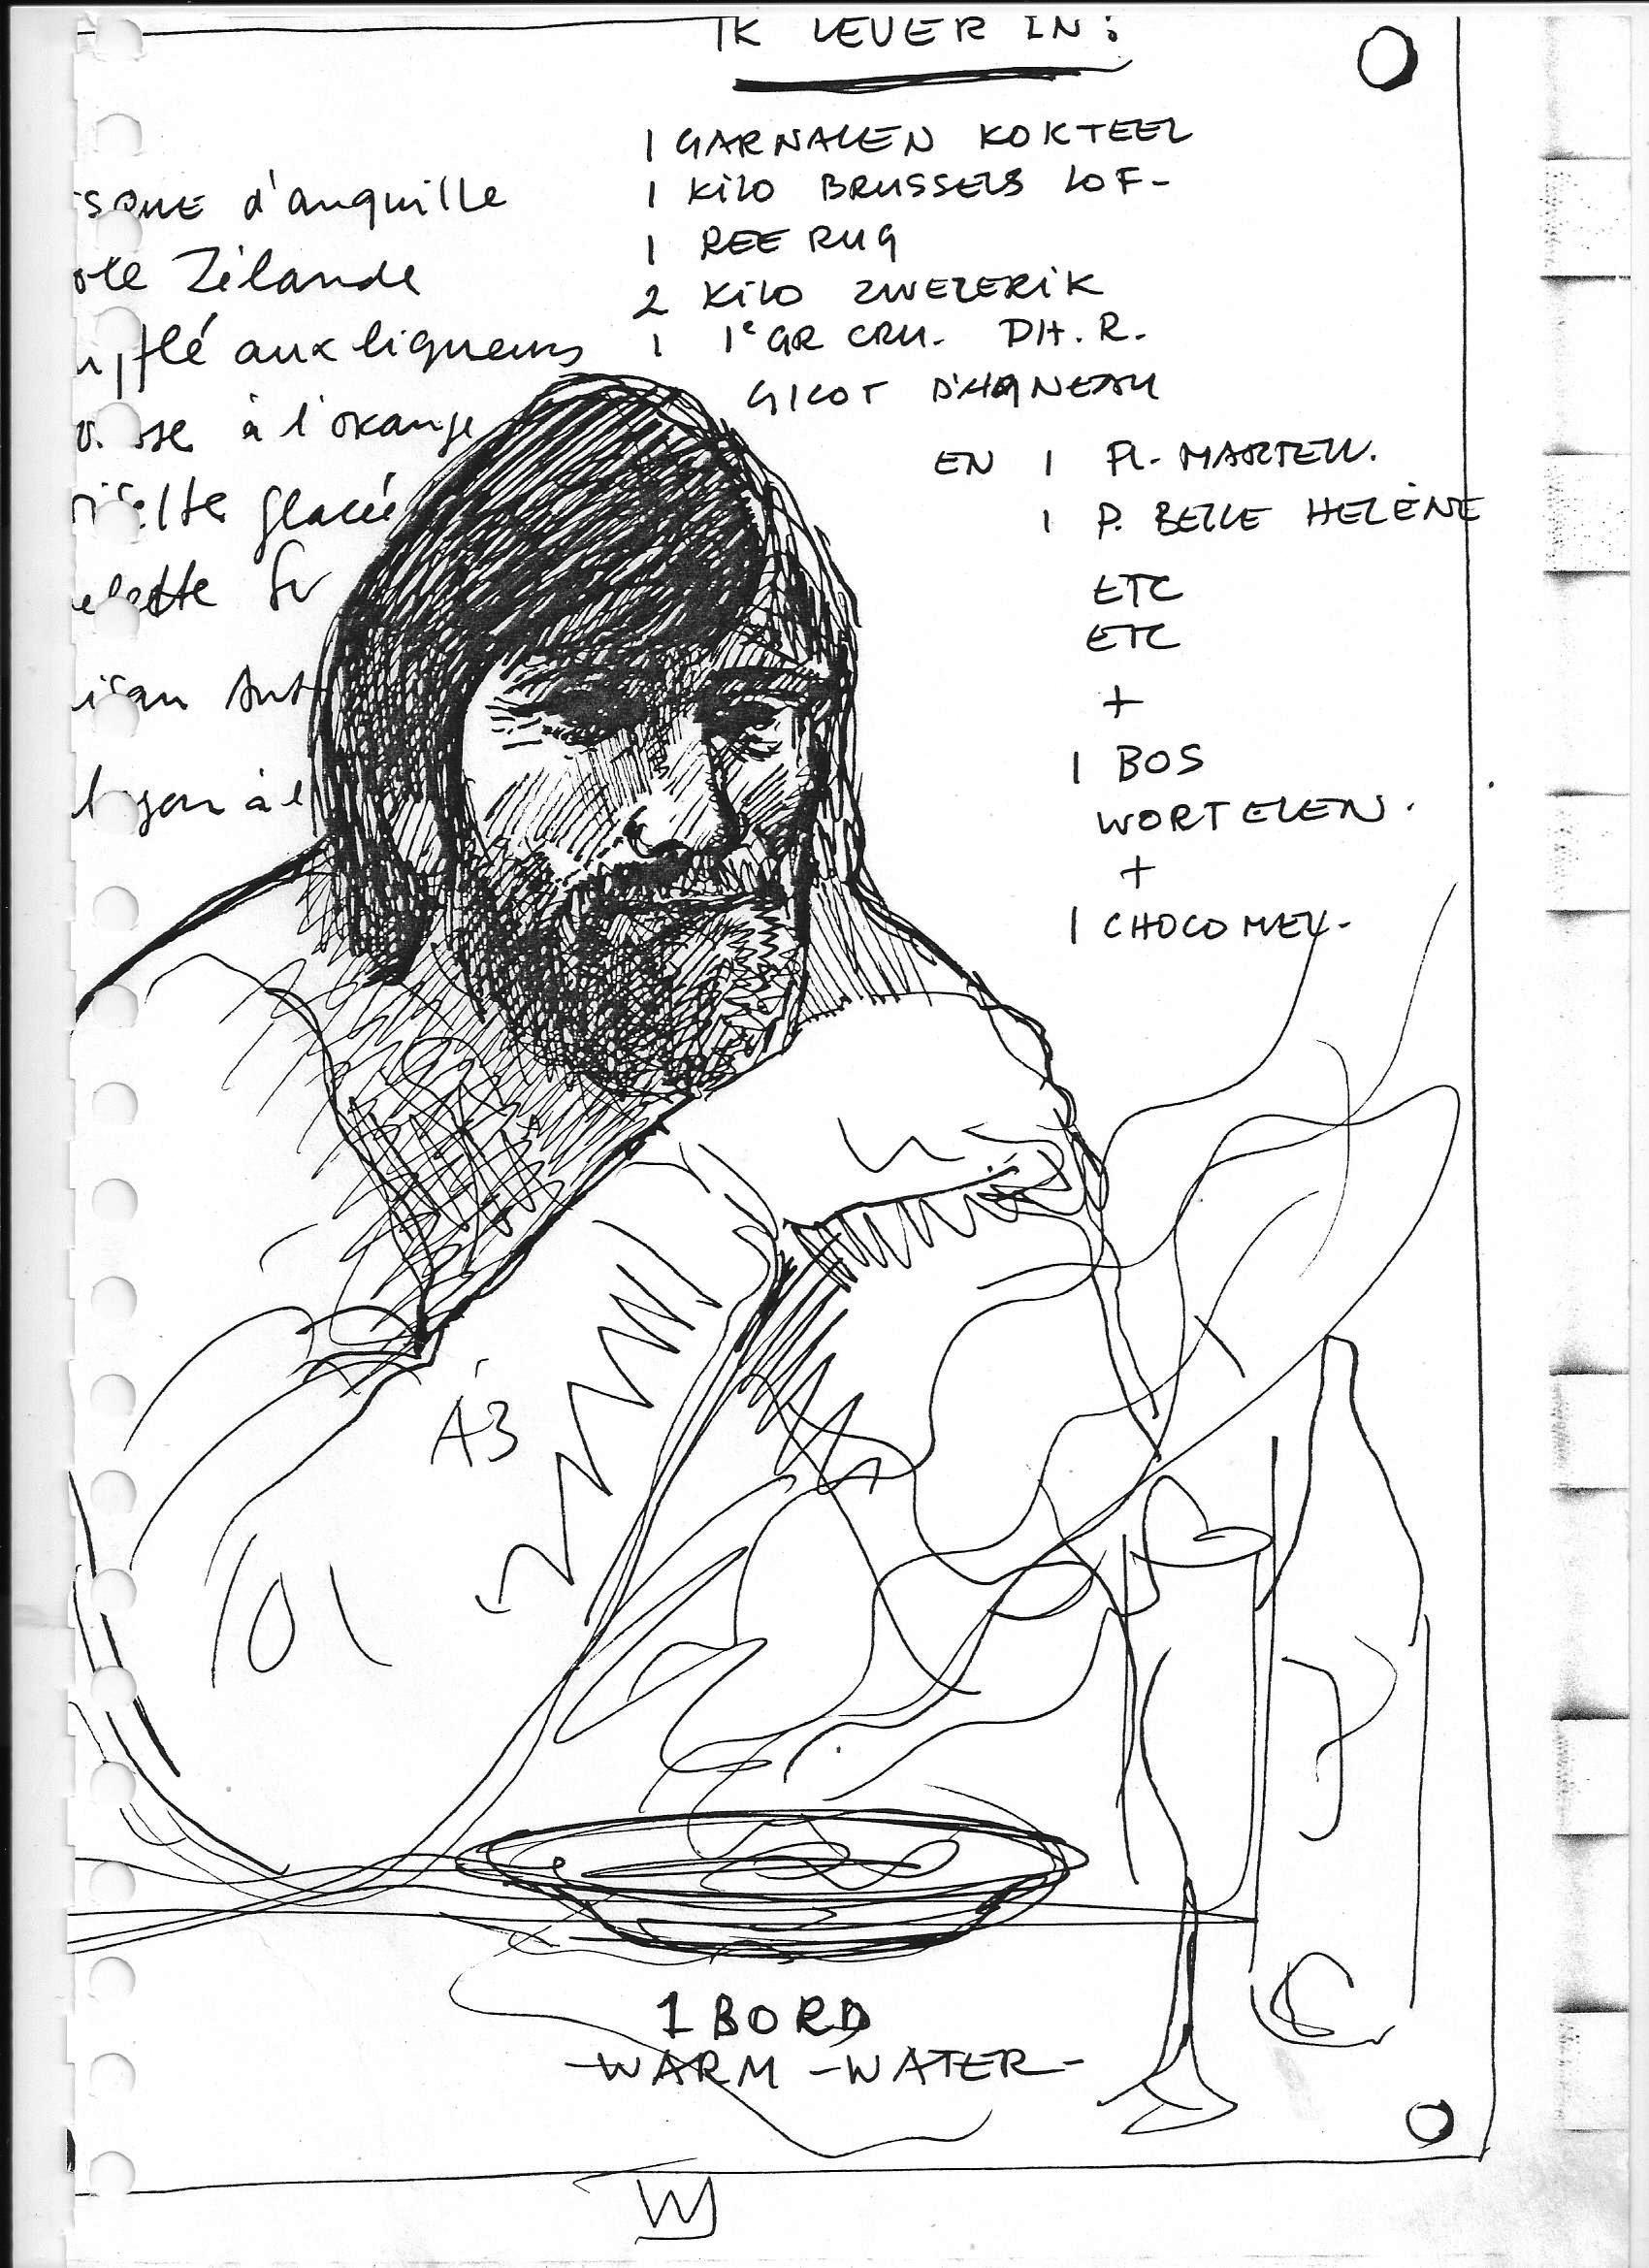 IK LEVER IN:
1 GARNALEN KOKTEEL
1 KILO BRUSSELS LOF-
1 REE RUG
2 KILO ZWEZERIK
1 1e GR CRU. DH. R.
GIGOT D'AGNEAU
EN 1 FL. MARTELL.
1 P. BELLE HELÈNE
ETC
ETC
+
1 BOS
WORTELEN.
+
1 CHOCOMEL-
d'anguille
Zélande
aux liqueurs
à l'orange
glacée
à l
1 BORD
-WARM-WATER-